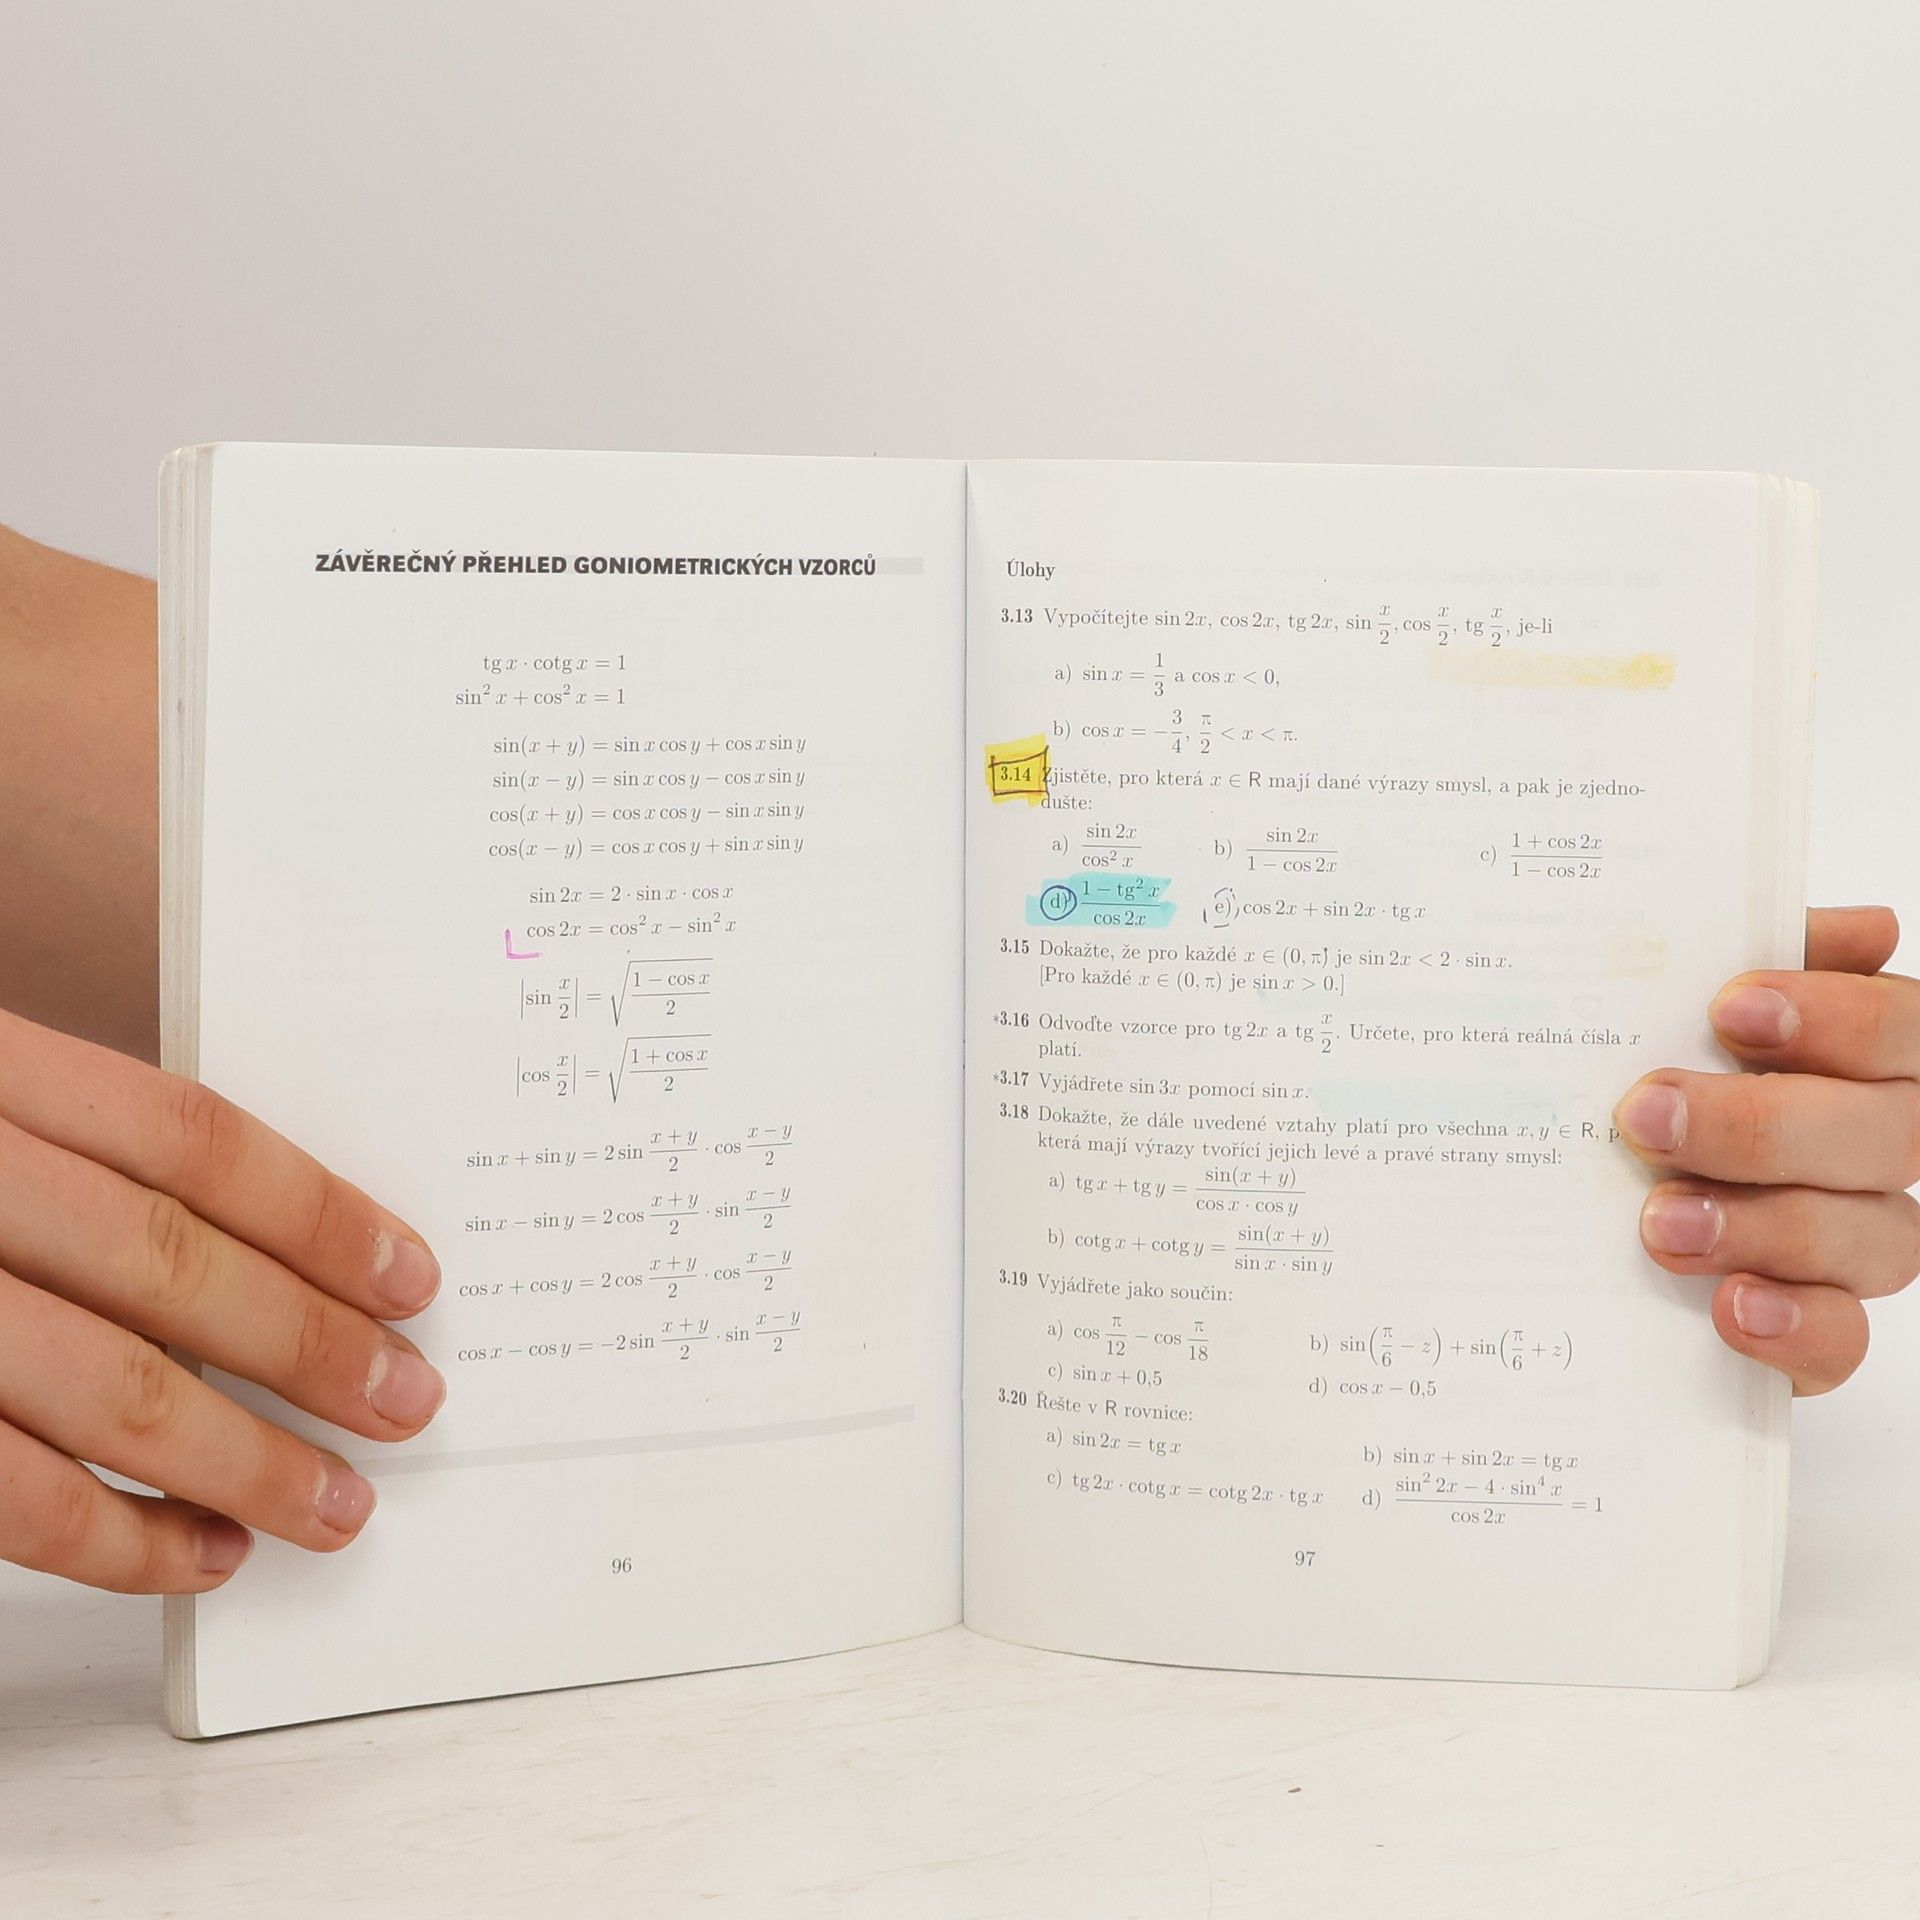 ZÁVĚREČNÝ PŘEHLED GONIOMETRICKÝCH VZORCŮ
tg x · cotg x = 1
sin² x + cos² x = 1
sin(x + y) = sin x cos y + cos x sin y
sin(x − y) = sin x cos y − cos x sin y
cos(x + y) = cos x cos y − sin x sin y
cos(x − y) = cos x cos y + sin x sin y
sin 2x = 2 · sin x · cos x
cos 2x = cos² x − sin² x
|sin x/2| = √((1 − cos x)/2)
|cos x/2| = √((1 + cos x)/2)
sin x + sin y = 2 sin (x + y)/2 · cos (x − y)/2
sin x − sin y = 2 cos (x + y)/2 · sin (x − y)/2
cos x + cos y = 2 cos (x + y)/2 · cos (x − y)/2
cos x − cos y = −2 sin (x + y)/2 · sin (x − y)/2
96
Úlohy
3.13 Vypočítejte sin 2x, cos 2x, tg 2x, sin x/2, cos x/2, tg x/2, je-li
a) sin x = 1/3 a cos x < 0,
b) cos x = −3/4, π/2 < x < π.
3.14 Zjistěte, pro která x ∈ R mají dané výrazy smysl, a pak je zjedno-
dušte:
a) sin 2x / cos² x b) sin 2x / (1 − cos 2x) c) (1 + cos 2x) / (1 − cos 2x)
d) (1 − tg² x) / cos 2x e) cos 2x + sin 2x · tg x
3.15 Dokažte, že pro každé x ∈ (0, π) je sin 2x < 2 · sin x.
[Pro každé x ∈ (0, π) je sin x > 0.]
*3.16 Odvoďte vzorce pro tg 2x a tg x/2. Určete, pro která reálná čísla x
platí.
*3.17 Vyjádřete sin 3x pomocí sin x.
3.18 Dokažte, že dále uvedené vztahy platí pro všechna x, y ∈ R,
která mají výrazy tvořící jejich levé a pravé strany smysl:
a) tg x + tg y = sin(x + y) / (cos x · cos y)
b) cotg x + cotg y = sin(x + y) / (sin x · sin y)
3.19 Vyjádřete jako součin:
a) cos π/12 − cos π/18 b) sin(π/6 − z) + sin(π/6 + z)
c) sin x + 0,5 d) cos x − 0,5
3.20 Řešte v R rovnice:
a) sin 2x = tg x b) sin x + sin 2x = tg x
c) tg 2x · cotg x = cotg 2x · tg x d) (sin² 2x − 4 · sin⁴ x) / cos 2x = 1
97